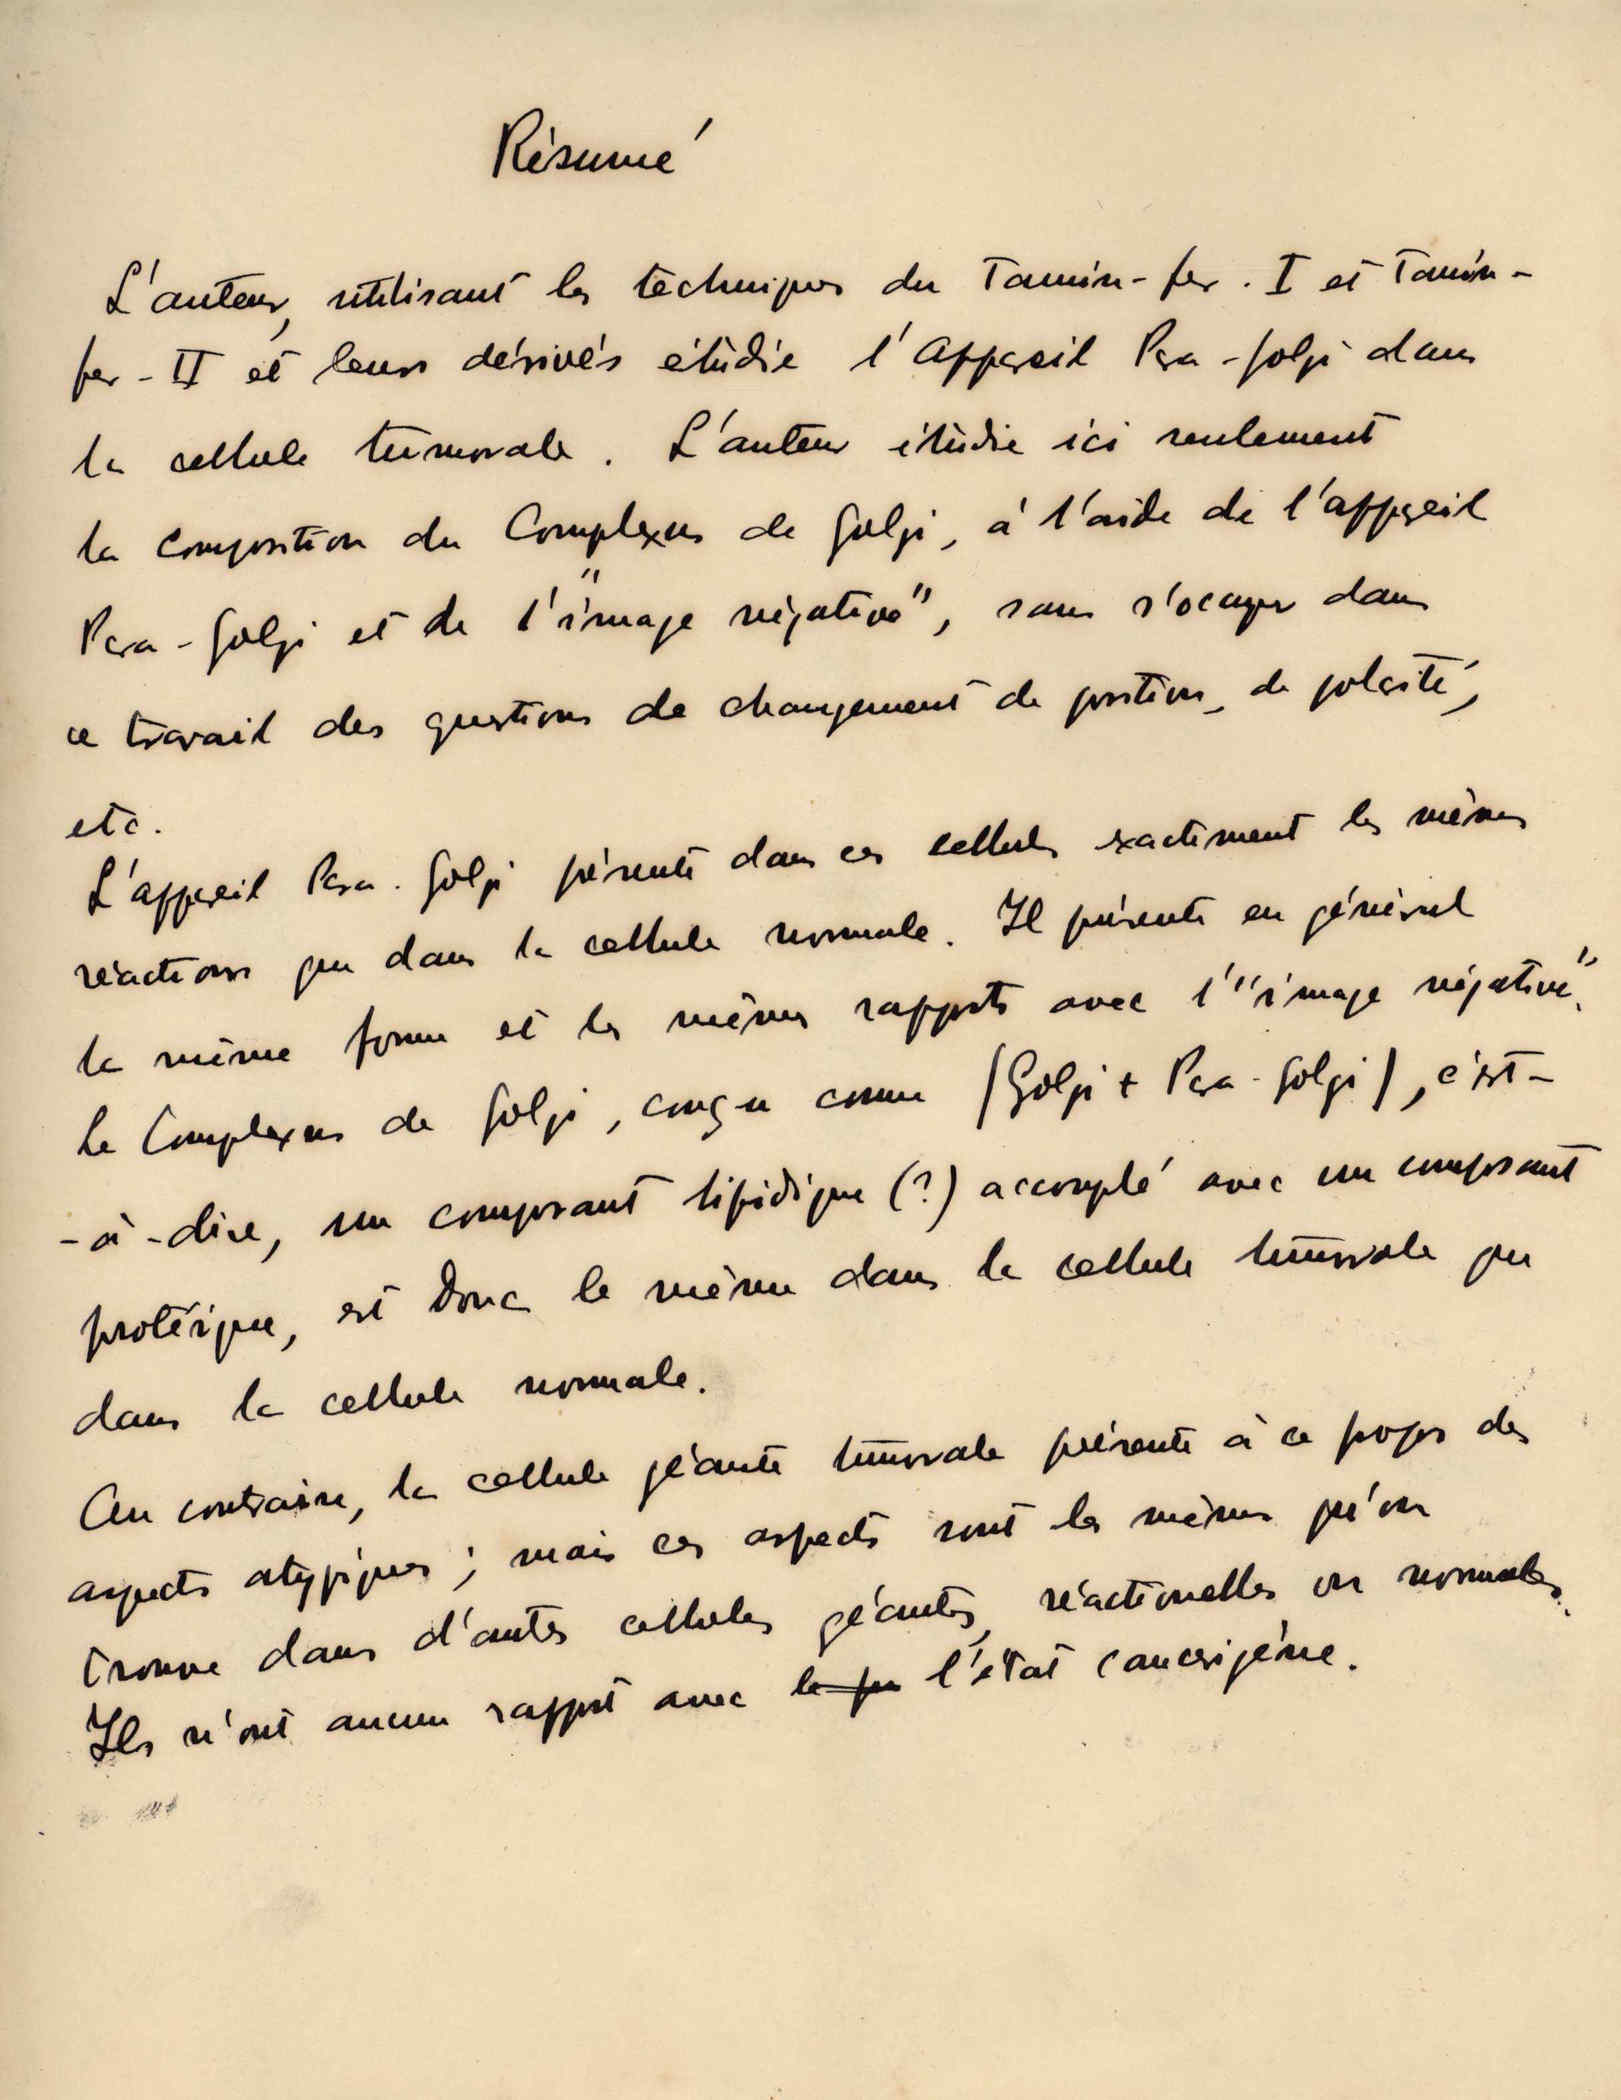 Résumé
L'auteur, utilisant les techniques du Tannin-fer. I et Tannin-
fer-II et leurs dérivés étudie l'Appareil Para-Golgi dans
la cellule tumorale. L'auteur étudie ici seulement
la composition du Complexus de Golgi, à l'aide de l'appareil
Para-Golgi et de l'"image négative", sans s'ocuper dans
ce travail des questions de changement de position, de polarité,
etc.
L'appareil Para-Golgi présente dans ces cellules exactement les mêmes
réactions que dans la cellule normale. Il présente en général
la même forme et les mêmes rapports avec l'"image négative".
Le Complexus de Golgi, conçu comme (Golgi + Para-Golgi), c'est-
-à-dire, un composant lipidique (?) accouplé avec un composant
protéique, est donc le même dans la cellule tumorale que
dans la cellule normale.
Au contraire, la cellule géante tumorale présente à ce propos des
aspects atypiques; mais ces aspects sont les mêmes qu'on
trouve dans d'autres cellules géantes, réactionelles ou normales.
Ils n'ont aucun rapport avec l'état cancerigène.